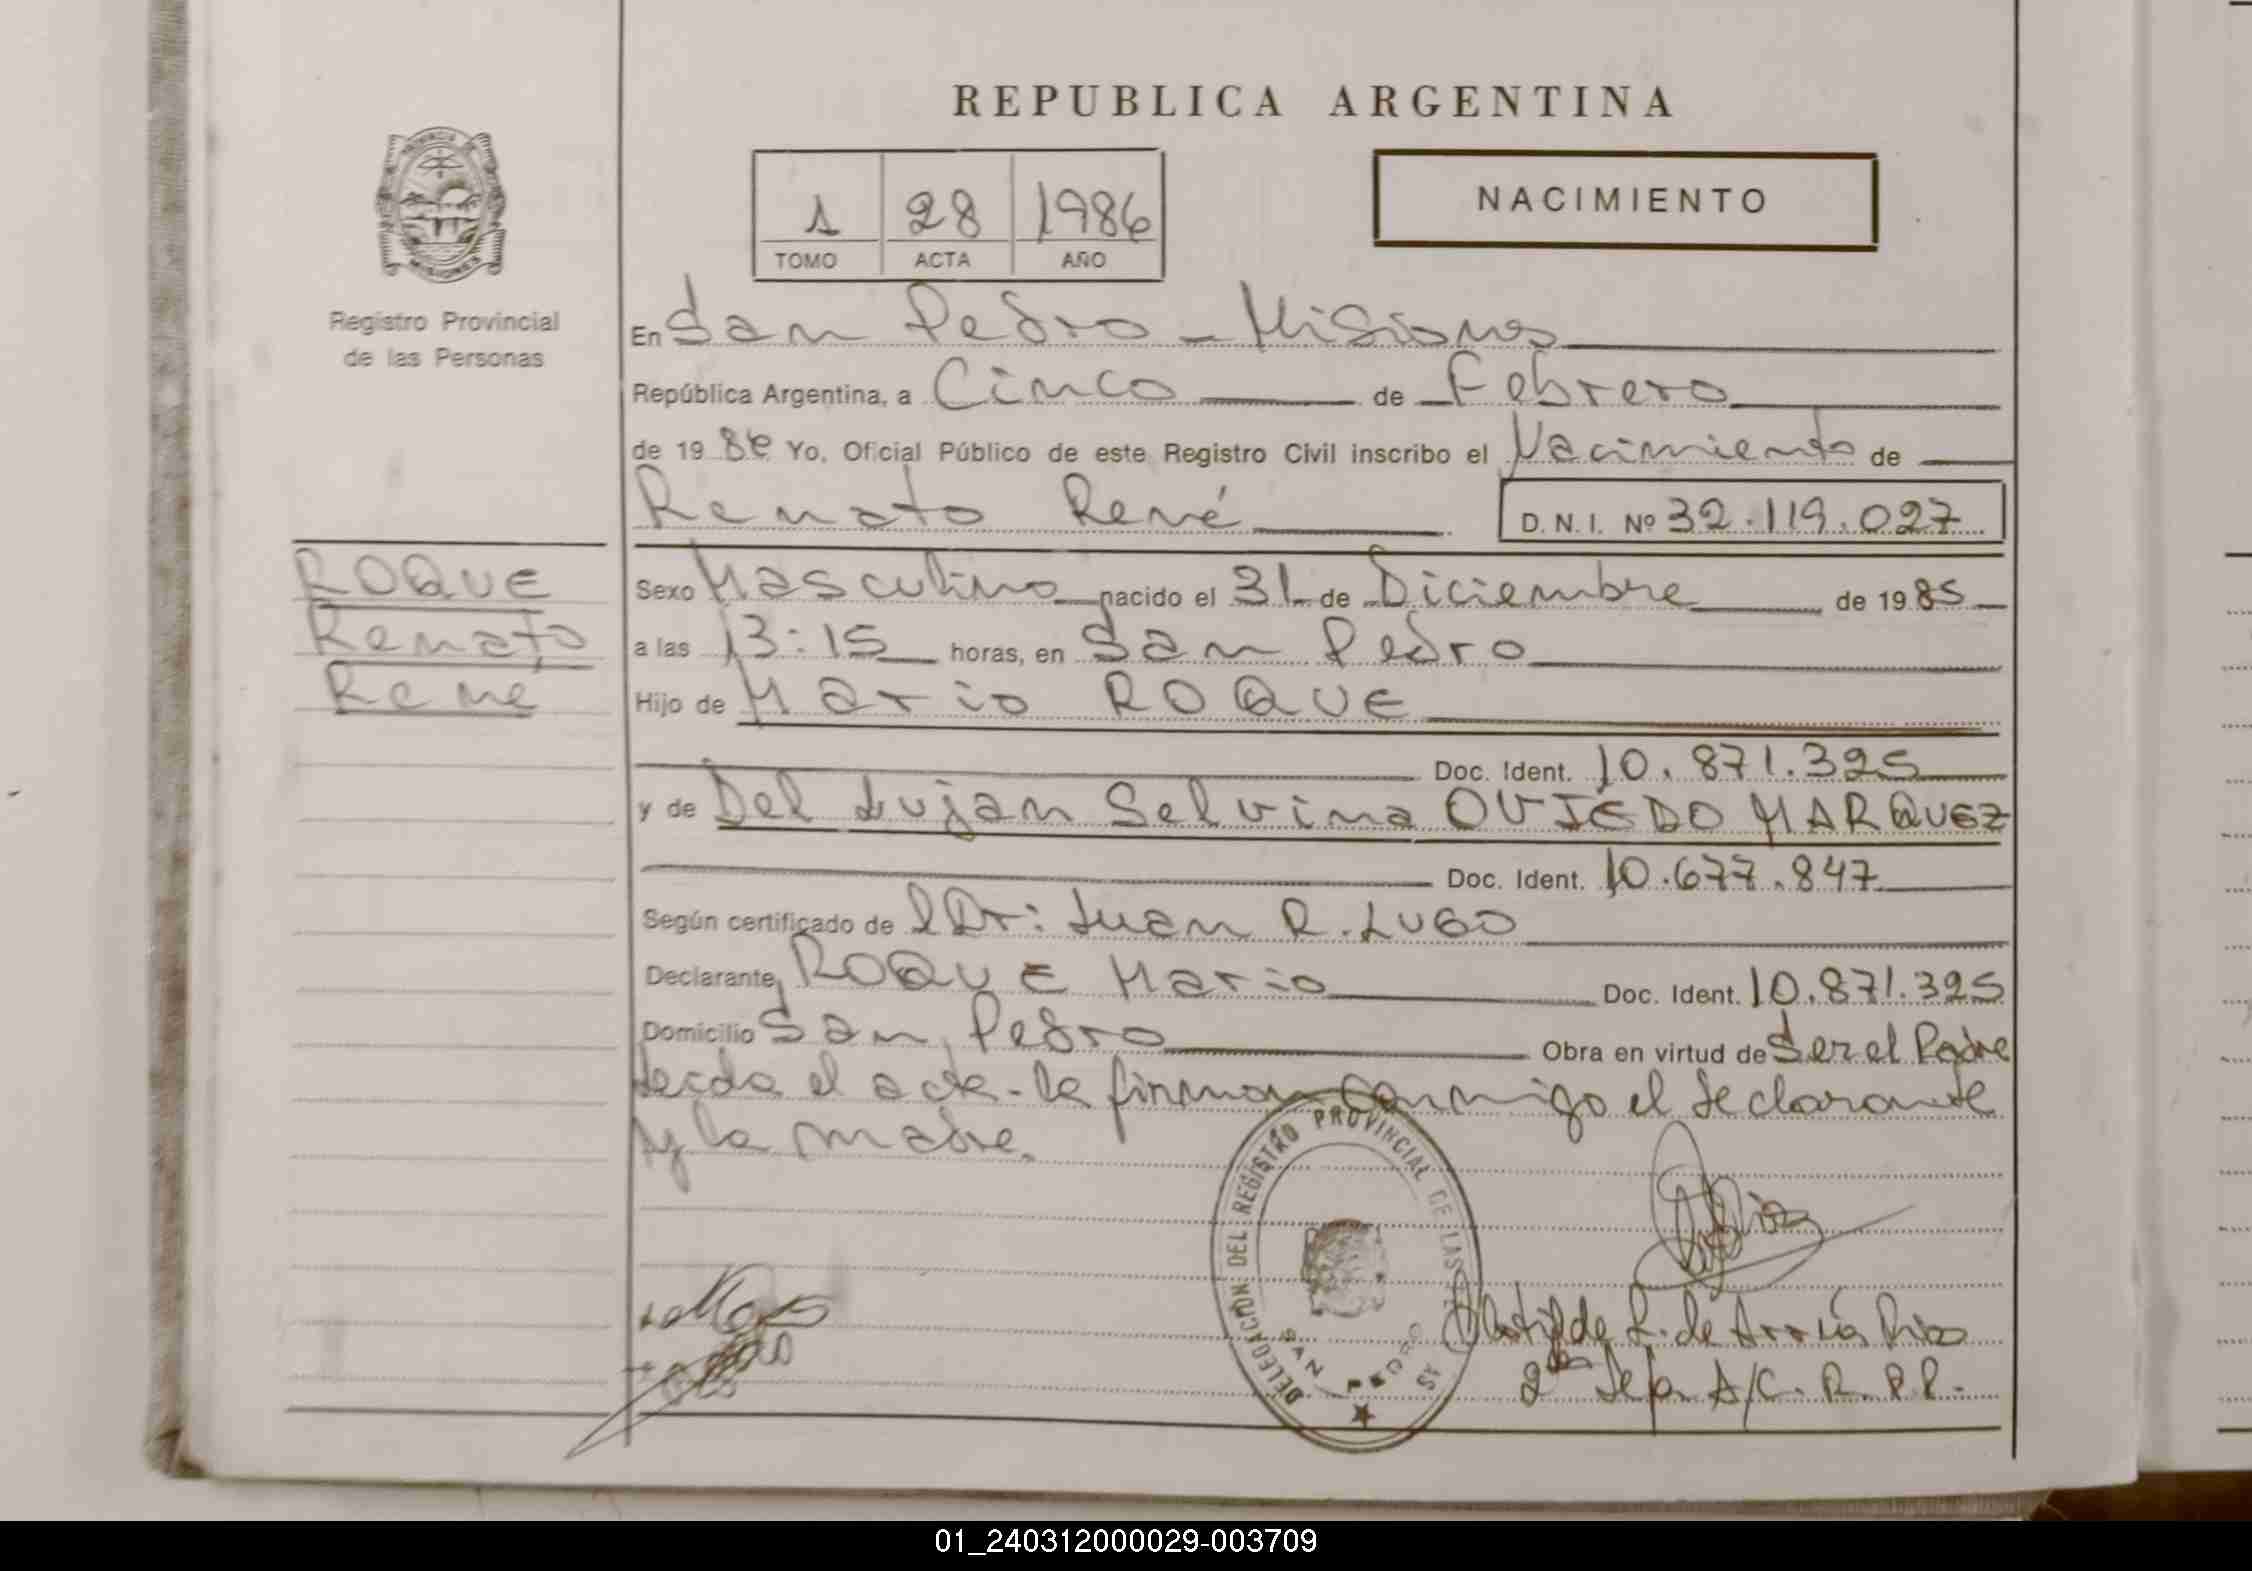 REPUBLICA ARGENTINA
PROVINCIA DE MISIONES
Registro Provincial
de las Personas
1 28 1986
TOMO ACTA AÑO
NACIMIENTO
En San Pedro - Misiones
República Argentina, a Cinco de Febrero
de 19 86 Yo, Oficial Público de este Registro Civil inscribo el Nacimiento de
Renato René D.N.I. Nº 32.119.027
ROQUE
Renato
René
Sexo Masculino nacido el 31 de Diciembre de 1985
a las 13:15 horas, en San Pedro
Hijo de Mario ROQUE
Doc. Ident. 10.871.325
y de Del Lujan Selvina OVIEDO MARQUEZ
Doc. Ident. 10.677.847
Según certificado de l Dr: Juan R. LUGO
Declarante ROQUE Mario Doc. Ident. 10.871.325
Domicilio San Pedro Obra en virtud de Ser el Padre
Leida el acta - la firman Conmigo el declarante
y la madre.
DELEGACION DEL REGISTRO PROVINCIAL DE LAS
SAN PEDRO
Matilde R. de
2da Jefa A/C. R.P.P.
01_240312000029-003709